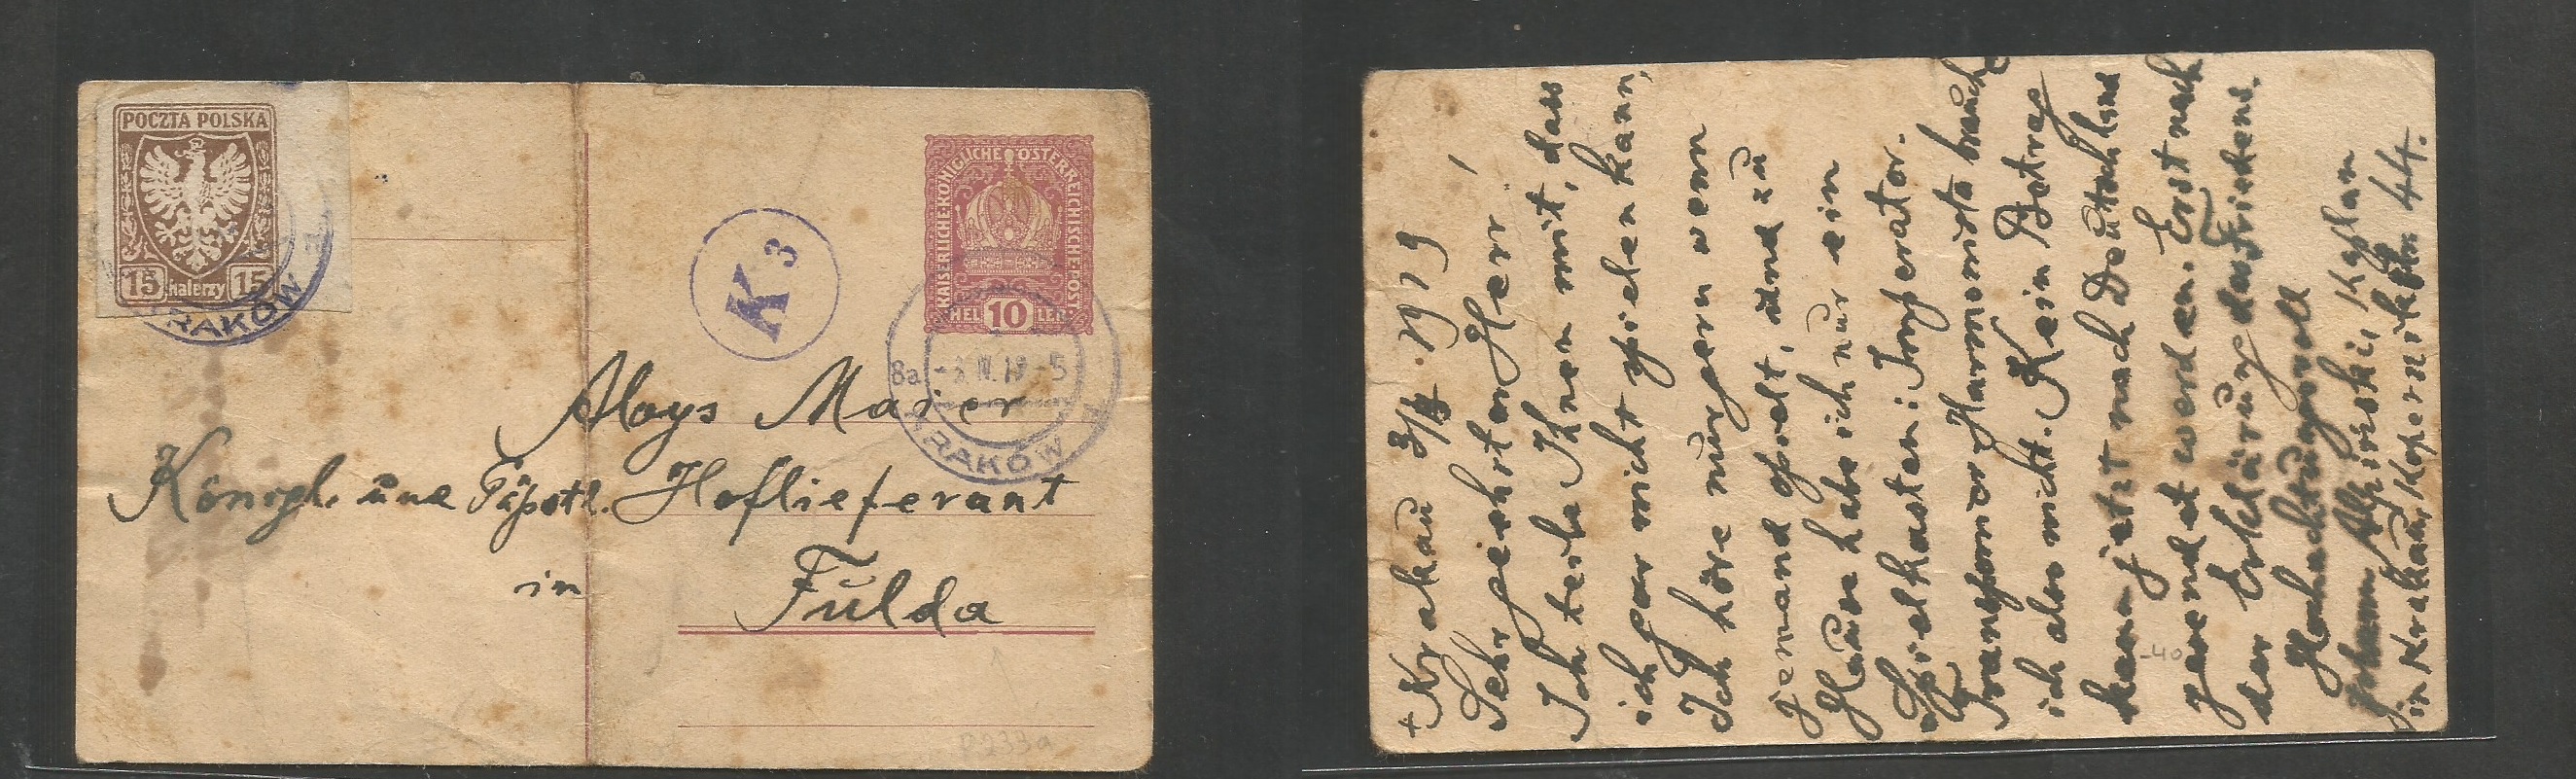 POCZTA POLSKA
15 halerzy 15
KRAKÓW
K 3
KAISERLICHE KÖNIGLICHE ÖSTERREICHISCHE POST
HEL 10 LER
8a -3.IV.19-5
KRAKÓW
Aloys Maier
Königl. und Päpstl. Hoflieferant
in Fulda
P233a
+ Krakau 3/4. 1919
Sehr geehrter Herr!
Ich teile Ihnen mit, dass
ich gar nicht spielen kann,
Ich höre nur gern wenn
jemand spielt, und zu
Hause habe ich nur ein
Spielkasten: Imperator.
Transponier Harmonista brauche
ich also nicht. Kein Betrag
kann jetzt nach Deutschland
gesendet werden. Erst nach
der Erklärung des Friedens.
Hochachtungsvoll
Johann Kaplan
in Krakau, Kopernikstr. 44.
-40